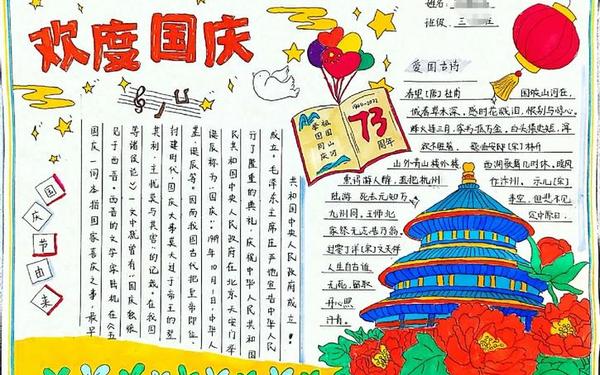 欢度国庆
姓名:
班级: 三
国庆节由来
国庆一词本指国家喜庆之事,最早
见于西晋。西晋的文学家陆机在《五
等诸侯论》一文中就曾有"国庆独飨
其利,主忧莫与其害"的记载。在我国
封建时代,国庆大事莫大过于帝王的登
基诞辰等。因而我国古代把皇帝即位、
诞辰称为"国庆"1949年10月1日,中华人
民共和国中央人民政府在北京天安门举
行了隆重的典礼,庆祝中华人民共和国
成立。毛泽东主席庄严地宣告中华人民
共和国中央人民政府成立!
1949-2022
73
周年
爱国古诗
春望[唐]杜甫 国破山河在,
城春草木深。感时花溅泪,恨别鸟惊心。
烽火连三月,家书抵万金。白头搔更短,浑
欲不胜簪。题临安邸[宋]林升
山外青山楼外楼 西湖歌舞几时休,暖风
熏得游人醉,直把杭州 作汴州。示儿[宋]
陆游 死去元知万 事空,但悲不见
九州同,王师北 定中原日,
家祭无忘告乃翁。
过零丁洋[宋]文天祥
人生自古谁
无死,留取
丹心照
汗青。